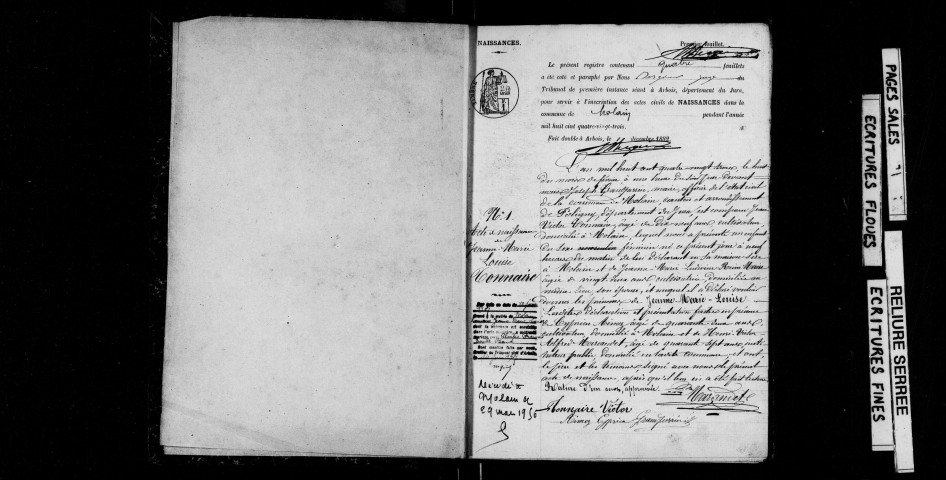 NAISSANCES.
Premier feuillet.
Le présent registre contenant quatre feuillets
a été coté et paraphé par Nous juge du
Tribunal de première instance séant à Arbois, département du Jura,
pour servir à l'inscription des actes civils de NAISSANCES dans la
commune de Molain pendant l'année
mil huit cent quatre-vingt-trois.
Fait double à Arbois, le décembre 1882
L'an mil huit cent quatre vingt trois, le huit
du mois de à une heure du soir, par devant
nous Joseph Grandperrin, maire, officier de l'état civil
de la commune de Molain, canton et arrondissement
de Poligny, département du Jura, est comparu Jean
Victor Monnaire, âgé de dix neuf ans, cultivateur
domicilié à Molain, lequel nous a présenté un enfant
du sexe féminin né ce présent jour à neuf
heures du matin de lui déclarant en sa maison sise
à Molain et de Jeanne Marie
âgée de vingt deux ans cultivatrice domiciliée au
même lieu, son épouse, et auquel il a déclaré vouloir
donner les prénoms de Jeanne-Marie-Louise
Lesdites déclaration et présentation faites en présence
de Cyprien Aimez, âgé de quarante deux ans,
cultivateur domicilié à Molain et de Henri Victor
Alfred Marandet, âgé de quarante sept ans, insti-
tuteur public, domicilié en ladite commune, et ont
le père et les témoins signé avec nous le présent
acte de naissance, après qu'il leur en a été fait lecture
Rature d'un mot, approuvée.
Marandet
Monnaire Victor
Aimez Cyprien Grandperrin
N° 1
Acte de naissance
de
Jeanne-Marie
Louise
Monnaire
Décédée
Molain le
29 mai 1956
PAGES SALES
ECRITURES FLOUES
RELIURE SERREE
ECRITURES FINES